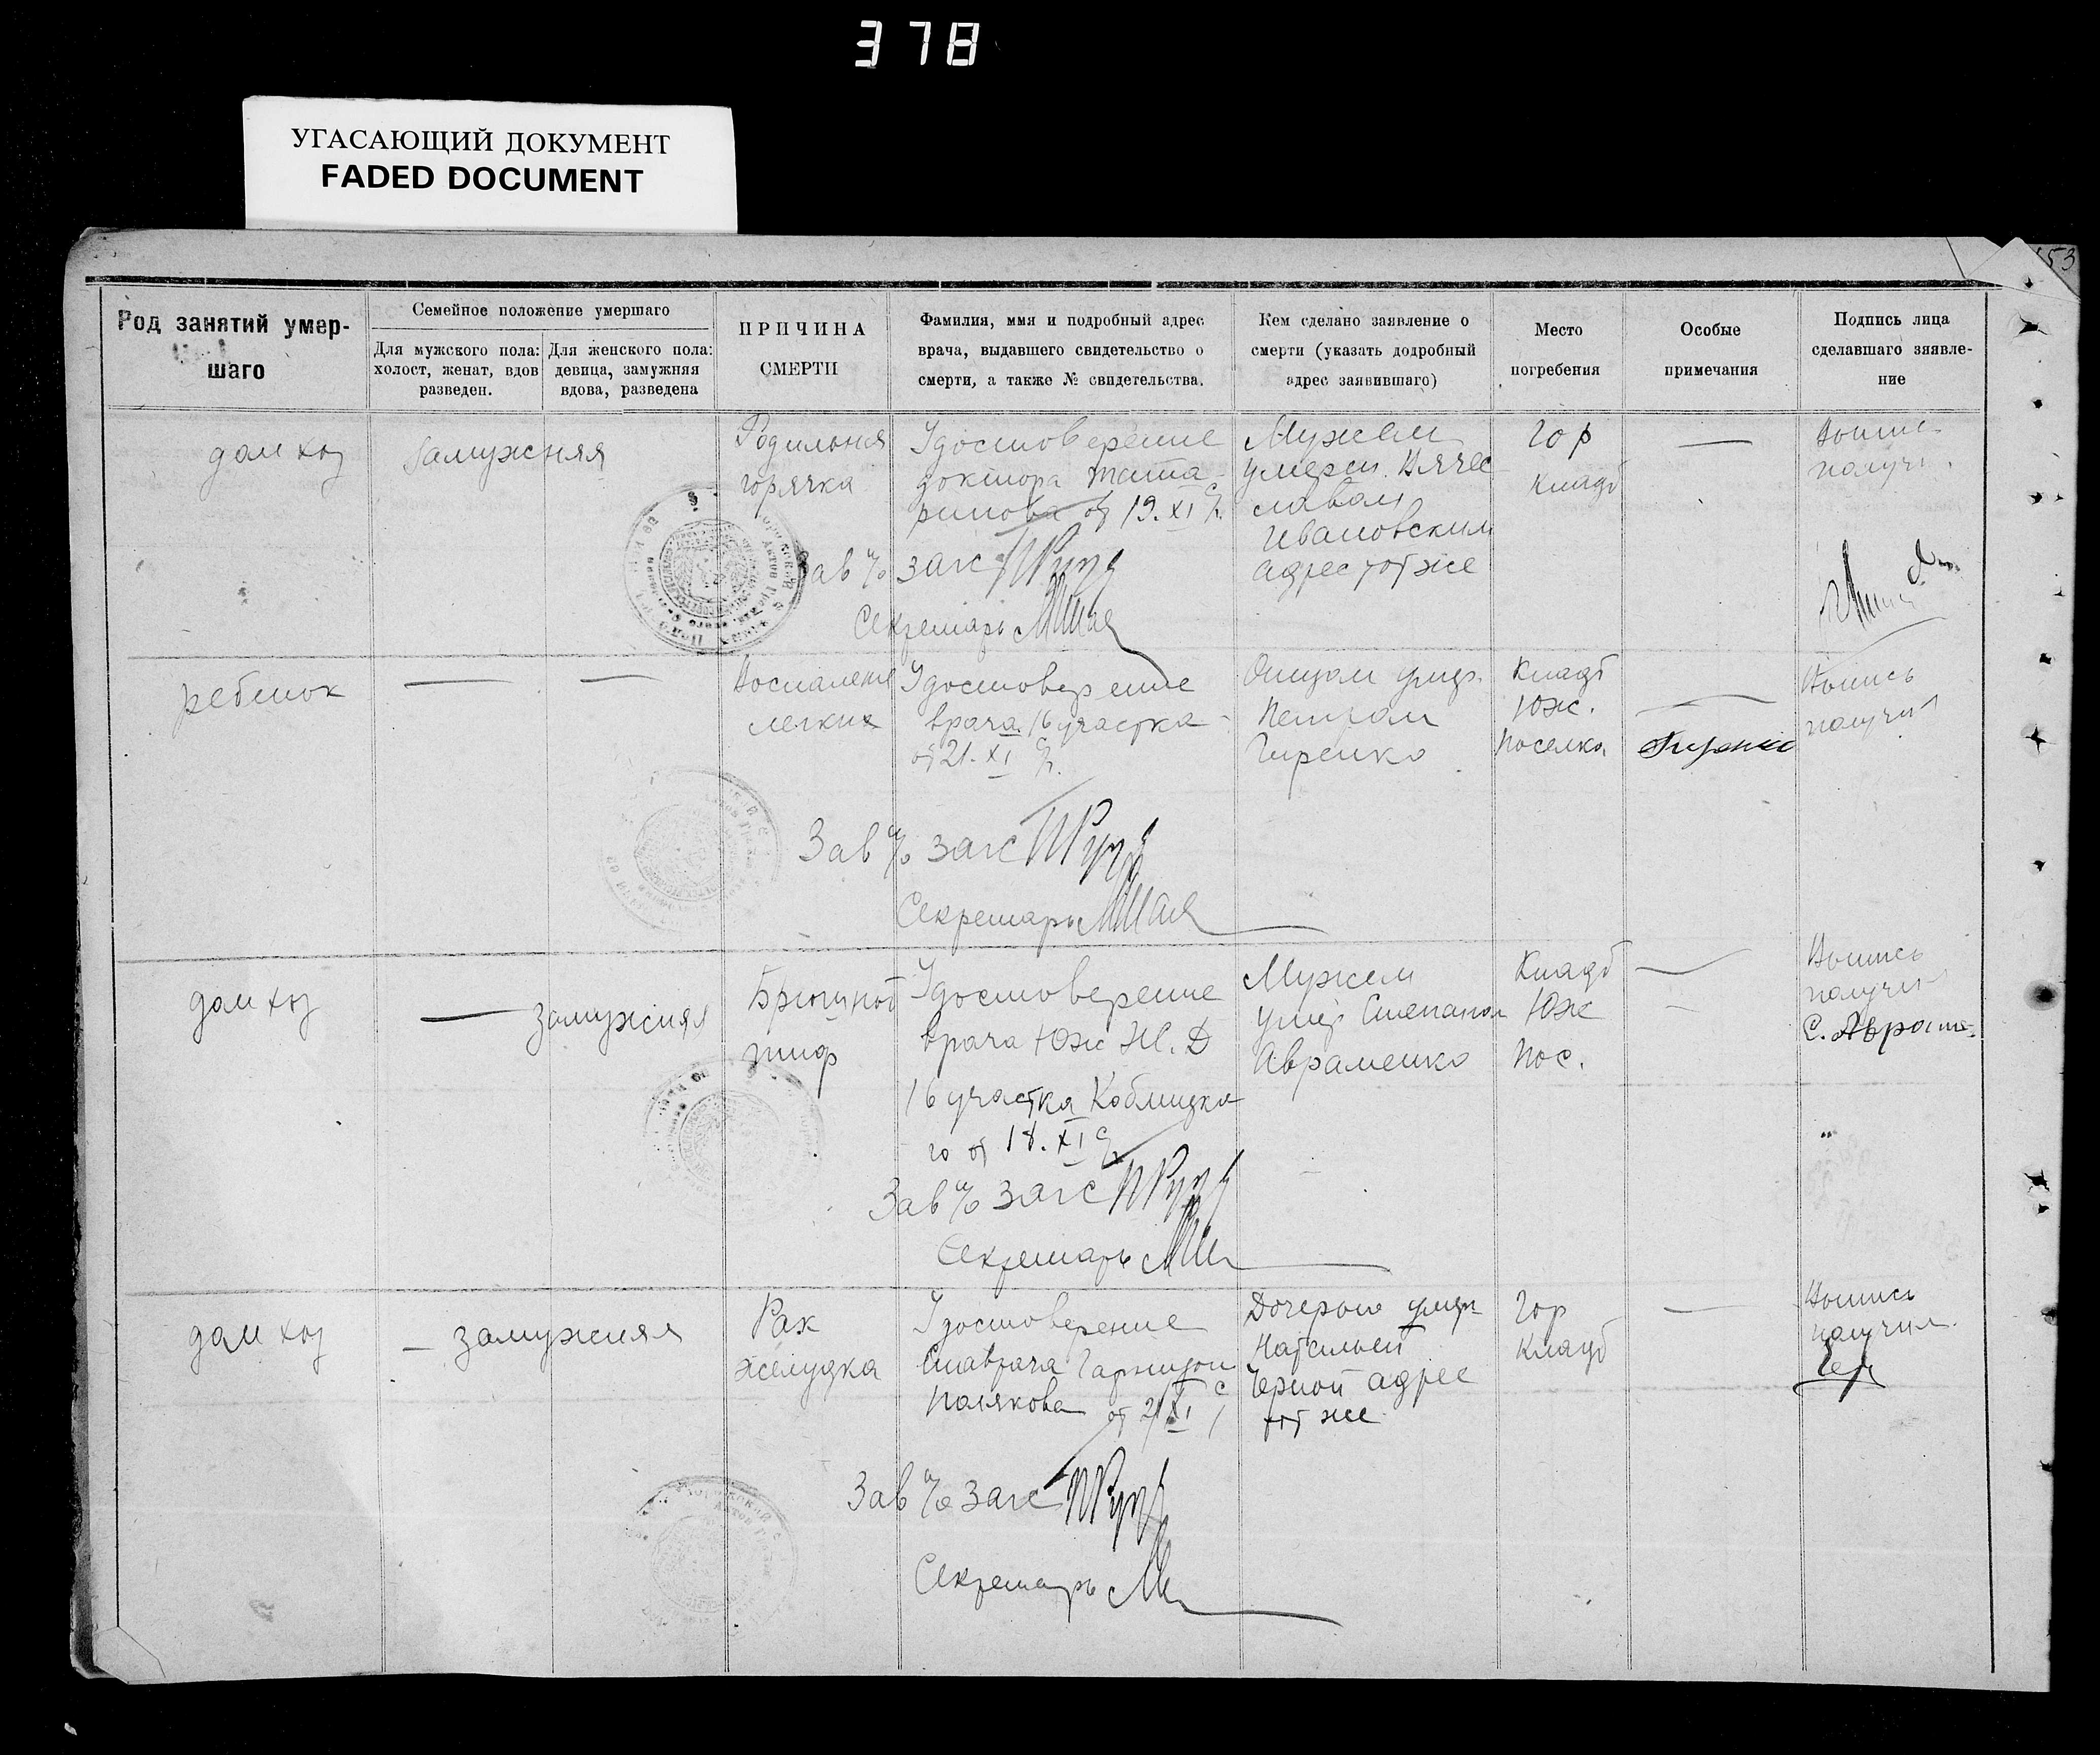 378
УГАСАЮЩИЙ ДОКУМЕНТ
FADED DOCUMENT
53
Род занятий умер-
шаго
Семейное положение умершаго
Для мужского пола:
холост, женат, вдов
разведен.
Для женского пола:
девица, замужняя
вдова, разведена
ПРИЧИНА
СМЕРТИ
Фамилия, имя и подробный адрес
врача, выдавшего свидетельство о
смерти, а также № свидетельства.
Кем сделано заявление о
смерти (указать додробный
адрес заявившаго)
Место
погребения
Особые
примечания
Подпись лица
сделавшаго зяявле-
ние
дом хоз
замужняя
Родильная
горячка
Удостоверение
доктора
от 19. XI
Мужем
умерш. Вячес
лавом
Ивановским
адрес тот же
Гор
кладб
—
Выпись
получ.
Зав п/о загс
Секретарь
ребенок
—
—
Воспаление
легких
Удостоверение
врача 16 участка
от 21. XI
Отцом умер.
Петром
Гиренко
Кладб
Юж.
Поселка
—
Гиренко
Выпись
получил
Зав п/о загс
Секретарь
дом хоз
—
замужняя
Брюшной
тиф
Удостоверение
врача Юж Ж. Д
16 участка
го от 18. XI
Мужем
умер Степаном
Авраменко
Кладб
Юж
Пос.
—
Выпись
получил
С. Авраме-
Зав п/о загс
Секретарь
дом хоз
—
замужняя
Рак
желудка
Удостоверение
Главврача
Полякова от 21 XI
Дочерью умер
Натальей
Черной адрес
тот же
Гор
Кладб
—
Выпись
получил
Чер
Зав п/о загс
Секретарь